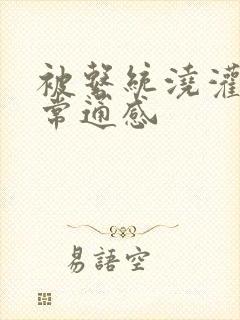 被繫統澆灌
常通感
易語空